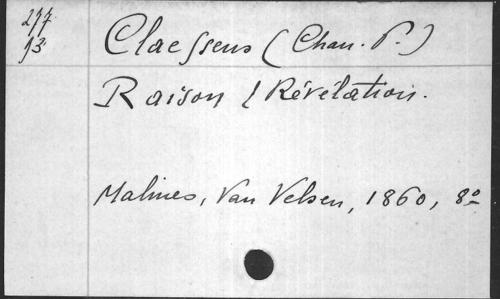 277
93
Claessens (Chan. P.)
Raison & Révélation.
Malines, Van Velsen, 1860, 8º